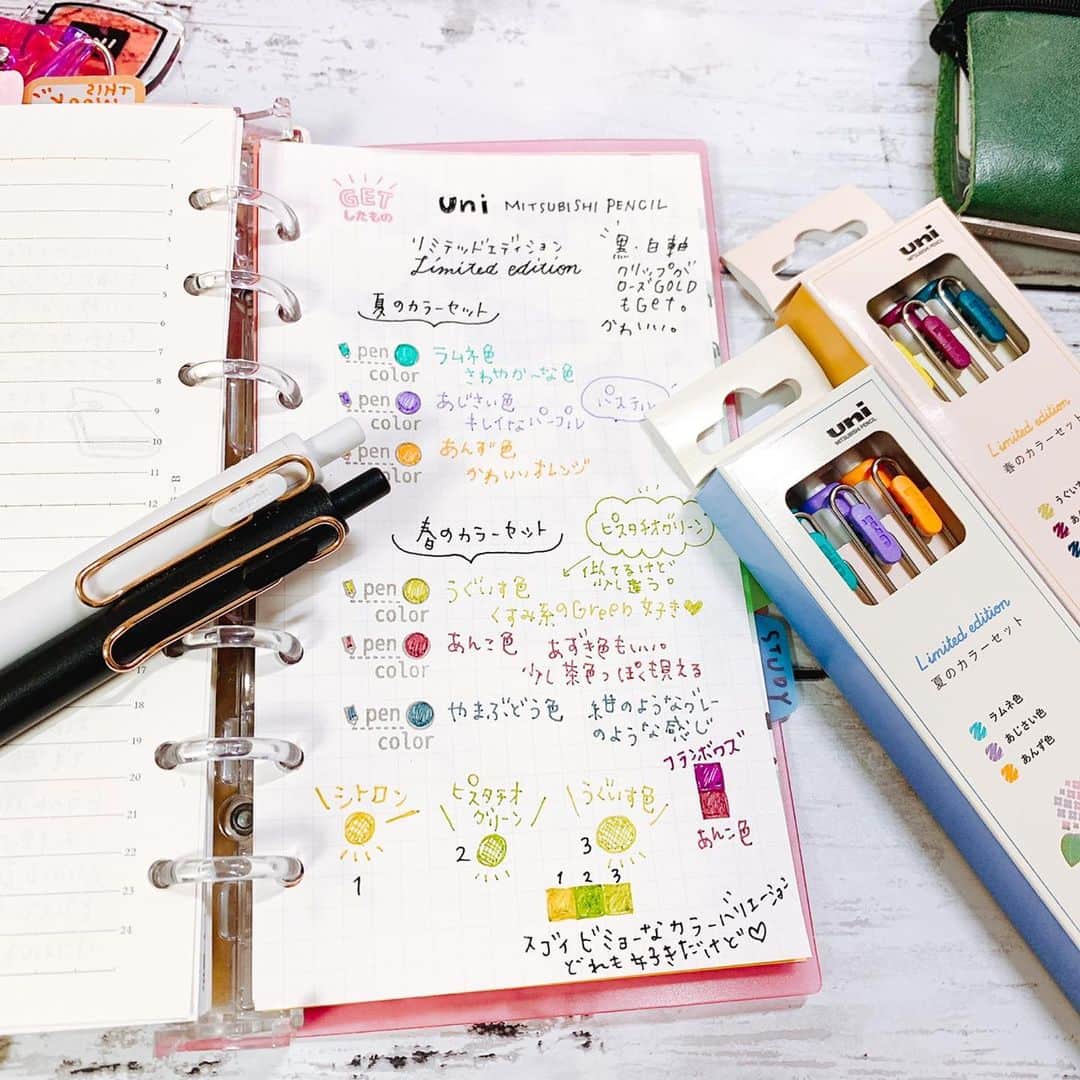 THIS
week
GET
したもの
uni MITSUBISHI PENCIL
リミテッドエディション
Limited edition
黒・白軸
クリップが
ローズGOLD
もGet。
かわいい。
夏のカラーセット
pen
color
ラムネ色
さわやか〜な色
pen
color
あじさい色
キレイなパープル
パステル
pen
color
あんず色
かわいいオレンジ
春のカラーセット
ピスタチオグリーン
似てるけど
少し違う。
pen
color
うぐいす色
くすみ系のGreen好き♥
pen
color
あんこ色
あずき色もいい。
少し茶色っぽくも見える
pen
color
やまぶどう色
紺のようなグレー
のような感じ
フランボワズ
あんこ色
シトロン
1
ピスタチオ
グリーン
2
うぐいす色
3
1 2 3
スゴイ ビミョーなカラーバリエーション
どれも好きだけど♡
1
2
3
4
5
6
7
8
9
10
11
12
17
18
19
20
21
22
23
24
STUDY
uni
MITSUBISHI PENCIL
Limited edition
春のカラーセット
uni
MITSUBISHI PENCIL
Limited edition
夏のカラーセット
ラムネ色
あじさい色
あんず色